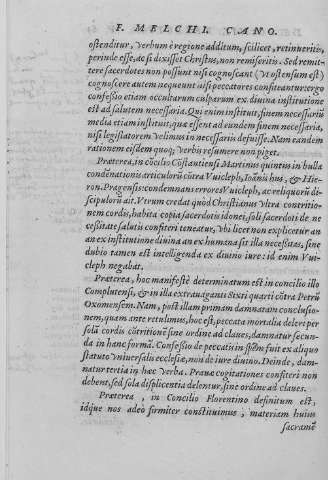 F. MELCHI. CANO.
ostenditur, verbum è regione additum, scilicet, retinueritis,
perinde esse, ac si dixisset Christus, non remiseritis. Sed remitte-
tere sacerdotes non possunt nisi cognoscant (vt ostensum est)
cognoscere autem nequeunt nisi peccatores confiteantur: ergo
confessio etiam occultarum culparum ex diuina institutione
est ad salutem necessaria. Qui enim instituit, finem necessariū
media etiam instituit, quæ essent ad eundem finem necessaria,
nisi legislatorem velimus in necessariis defuisse. Nam eandem
rationem eisdem quoq; verbis resumere non piget.
Præterea, in cōcilio Cōstantiensi Martinus quintus in bulla
condēnationis articulorū cōtra Vuicleph, Ioānis hus, & Hie-
ron. Pragensis: condemnans errores Vuicleph, ac reliquorū di-
scipulorū ait. Vtrum credat quòd Christianus vltra contritio-
nem cordis, habita copia sacerdotis idonei, soli sacerdoti de ne
cessitate salutis confiteri teneatur, vbi licet non explicetur an
an ex institutione diuina an ex humana sit illa necessitas, sine
dubio tamen est intelligenda ex diuino iure: id enim Vui-
cleph negabat.
Præterea, hoc manifestè determinatum est in concilio illo
Complutensi, & in illa extrauagantis Sixti quarti cōtra Petrū
Oxomensem. Nam, post illam primam damnatam conclusio-
nem, quam ante retulimus, hoc est, peccata mortalia deleri per
solā cordis cōtritionē sine ordine ad claues, damnatur secun-
da in hanc formā. Confessio de peccatis in speī fuit ex aliquo
statuto vniuersalis ecclesiæ, non de iure diuino. Deinde, dam-
natur tertia in hæc verba. Prauæ cogitationes confiteri non
debent, sed sola displicentia delentur, sine ordine ad claues.
Præterea, in Concilio Florentino definitum est,
idque nos adeò firmiter constituimus, materiam huius
sacramē-